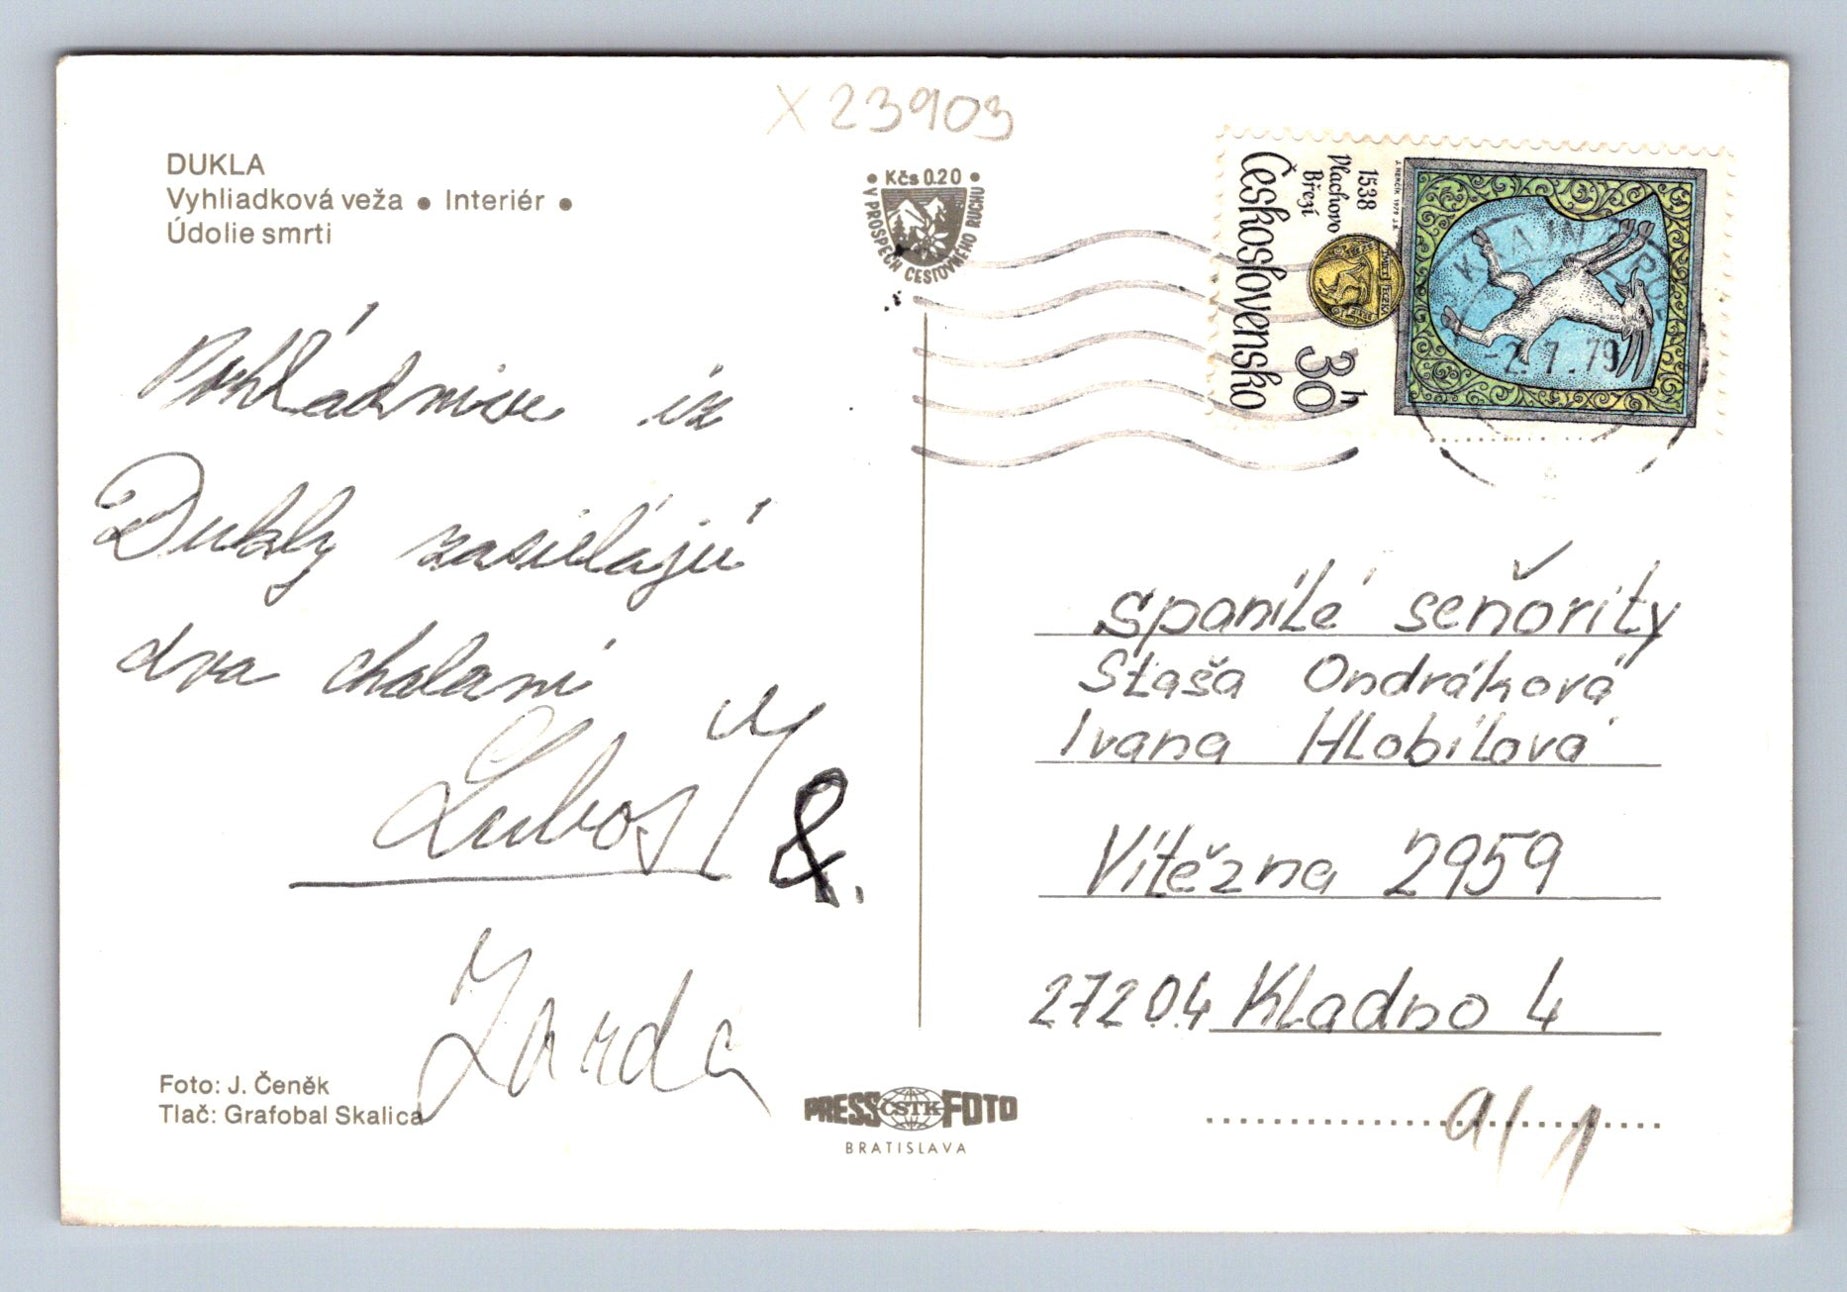 X 23903
DUKLA
Vyhliadková veža • Interiér •
Údolie smrti
• Kčs 0.20 •
V PROSPECH CESTOVNÉHO RUCHU
Československo
1538
Vlachovo
Březí
30 h
-2. 7. 79
Pohľadnicu iz
Dukly zasielajú
dva chalani
Ľuboš
&.
Jarda
spanilé señority
Staša Ondráková
Ivana Hlobilová
Vítězna 2959
27204 Kladno 4
a/1
Foto: J. Čeněk
Tlač: Grafobal Skalica
PRESS ČSTK FOTO
BRATISLAVA